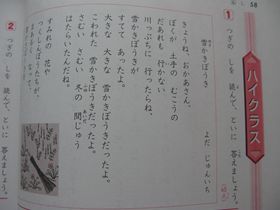 58
ハイクラス
1 つぎの しを 読んで、といに 答えましょう。
雪かきぼうき
よだ じゅんいち
きょうね、おかあさん。
ぼくが 土手の むこうの
だあれも 行かない
川っぷちに 行ったらね、
雪かきぼうきが
すてて あったよ。
大きな 大きな 雪かきぼうきだったよ。
こわれた 雪かきぼうきだったよ。
さむい さむい 冬の 間じゅう
はたらいたんだね。
2 つぎの しを 読んで、といに 答えましょう。
すみれの 花や
つくしんぼうたちが、